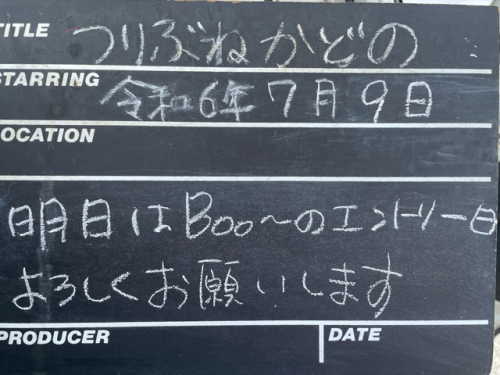 TITLE つりぶねかどの
STARRING 令和6年7月9日
LOCATION
明日はBoo~のエントリー日
よろしくお願いします
PRODUCER DATE